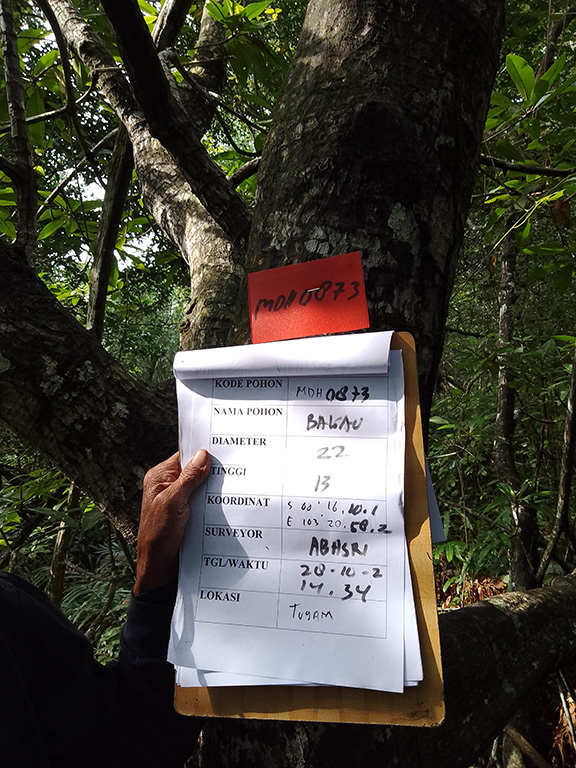 MDH0873
KODE POHON MDH 0873
NAMA POHON BALAU
DIAMETER 22
TINGGI 13
KOORDINAT S 00° 16. 10.1
E 103° 20. 58.2
SURVEYOR ABASRI
TGL/WAKTU 20-10-2
14.34
LOKASI TUGAM